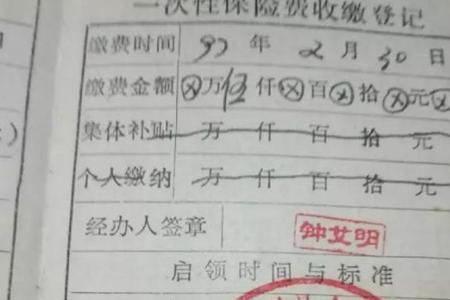 一次性保险费收缴登记
缴费时间 97年2月30日
缴费金额 ⊗万伍仟⊗百⊗拾⊗元⊗
集体补贴 万仟百拾元
个人缴纳 万仟百拾元
经办人签章 钟艾明
启领时间与标准